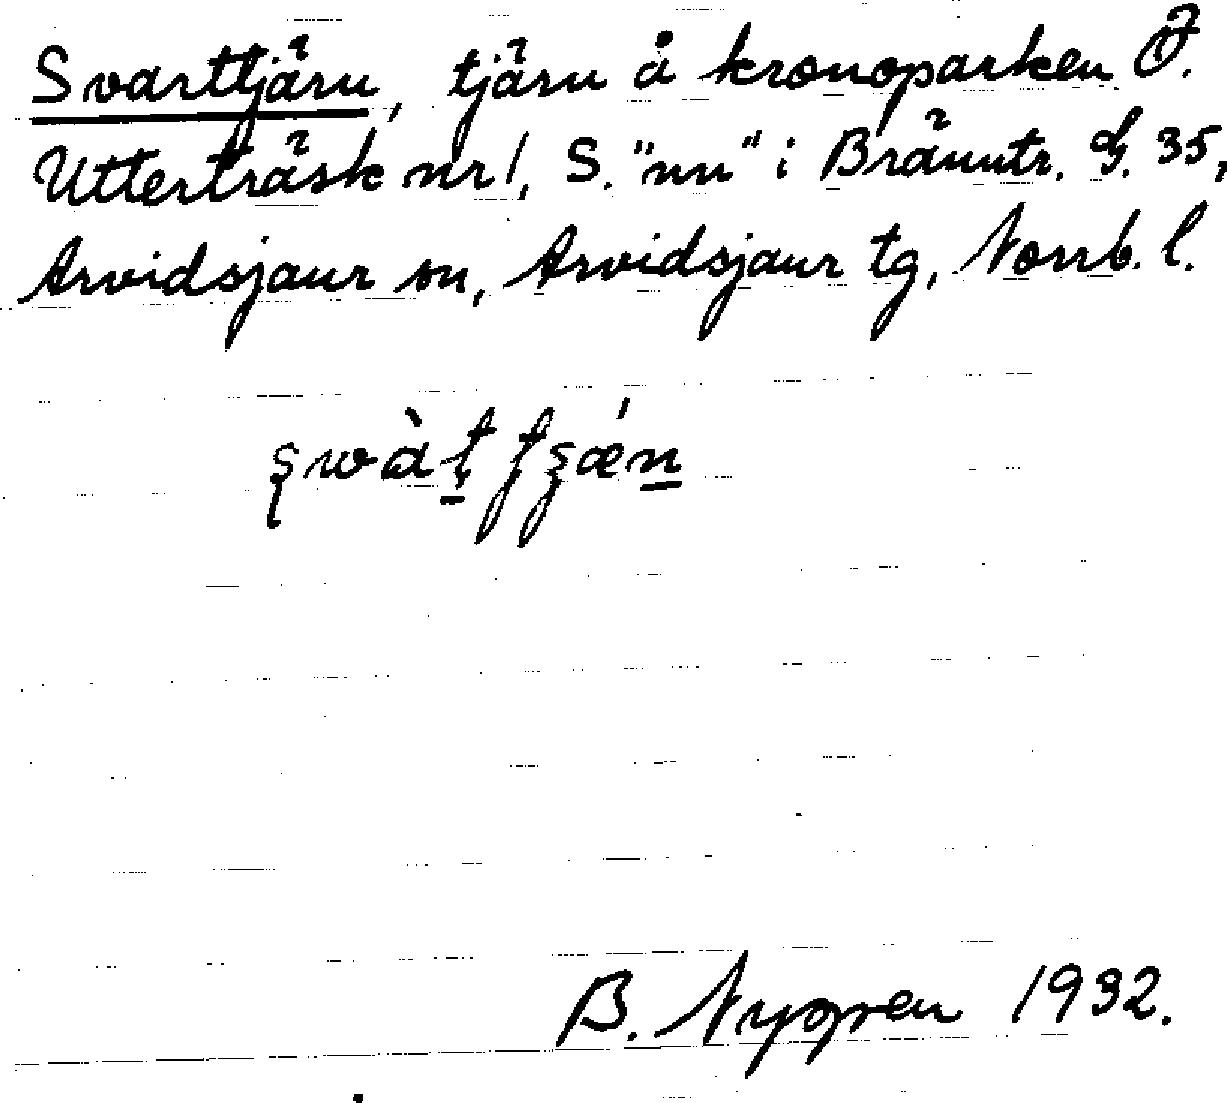 Svarttjärn, tjärn å kronoparken Ö.
Utterträsk nr 1, S. "nn" i Bränntr. G. 35,
Arvidsjaur sn, Arvidsjaur tg, Norrb. l.
B. Nygren 1932.